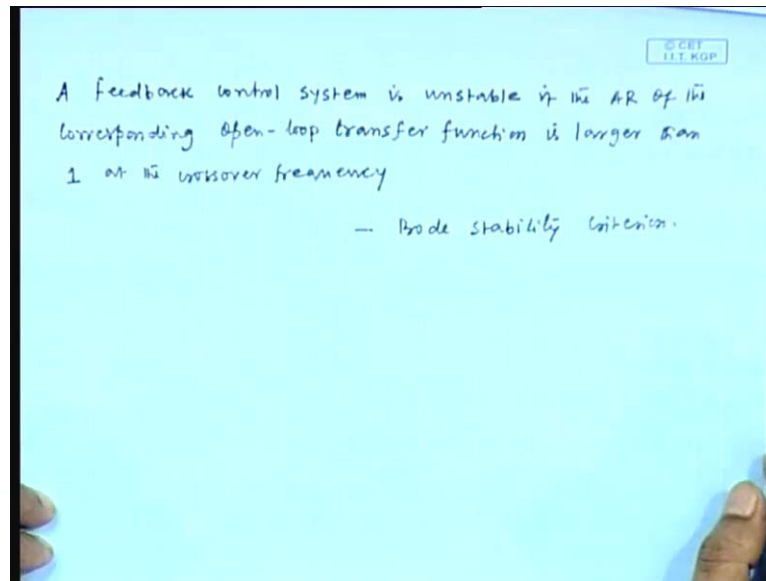 © CET
I.I.T. KGP
A feedback control system is unstable if the AR of the
corresponding open-loop transfer function is larger than
1 at the crossover frequency
— Bode stability criterion.